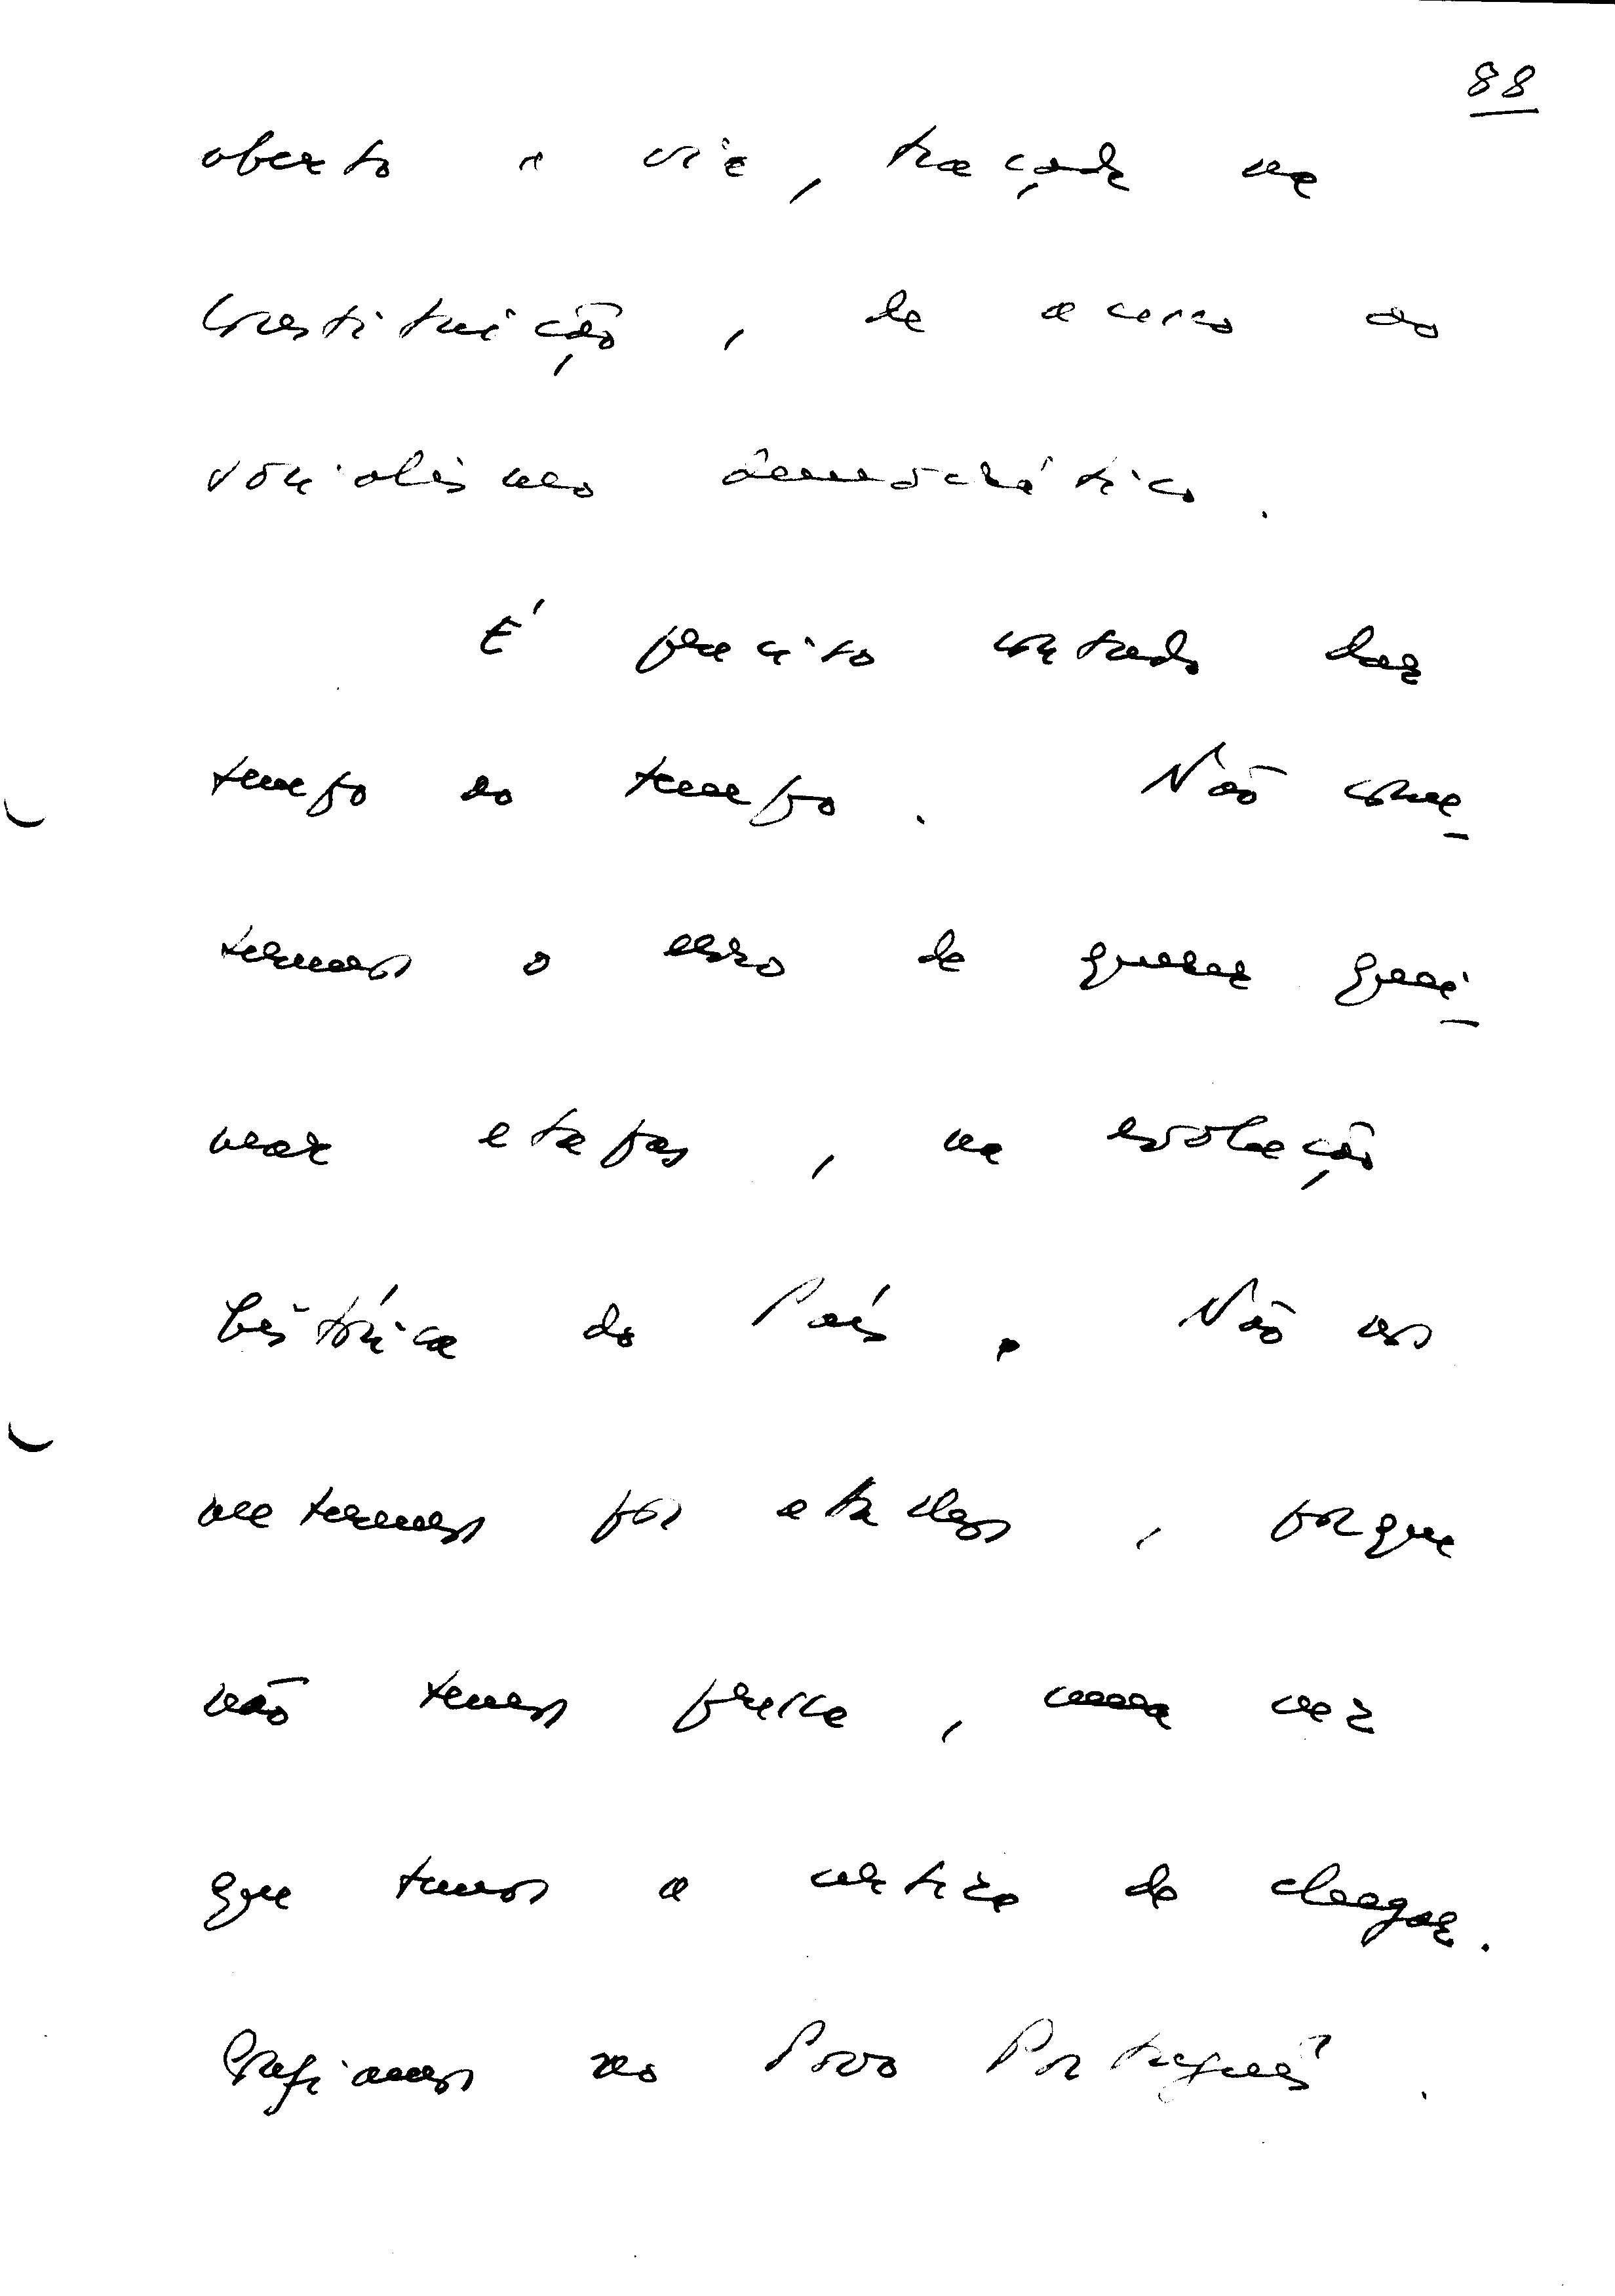 88
aberto a via, traçada na
Constituição, de acesso ao
socialismo democrático.
É preciso contudo dar
tempo ao tempo. Não come-
teremos o erro de querer quei-
mar etapas, na evolução
histórica do País. Não nos
meteremos por atalhos, porque
não temos pressa, uma vez
que temos a certeza de chegar.
Confiamos no Povo Português.